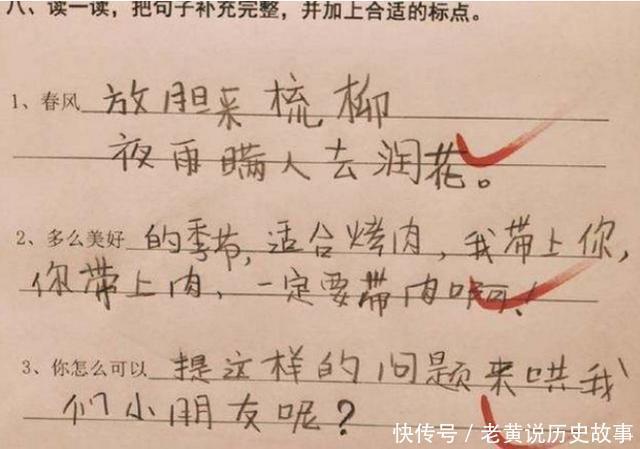 八、读一读，把句子补充完整，并加上合适的标点。
1、春风 放胆来梳柳
夜雨瞒人去润花。
2、多么美好 的季节,适合烤肉,我带上你,
你带上肉,一定要带肉呵!
3、你怎么可以 提这样的问题来哄我
们小朋友呢?
快传号/老黄说历史故事